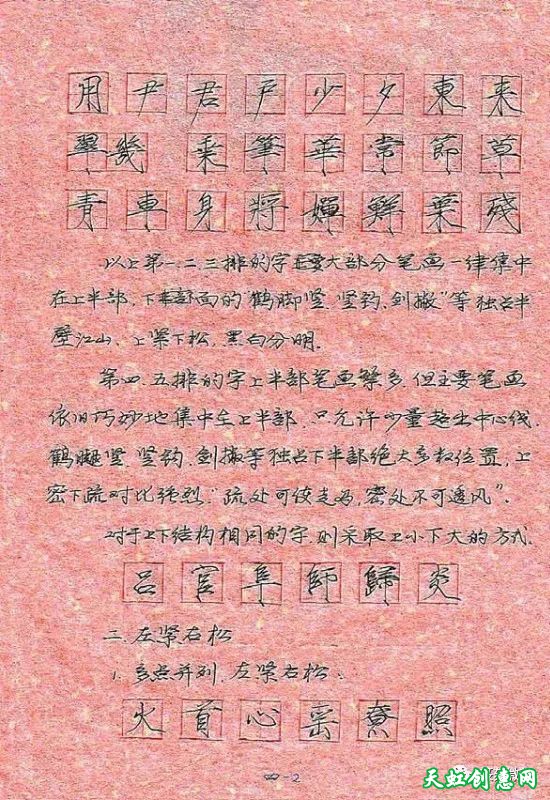 用 尹 君 户 少 夕 東 来
翠 幾 乘 筆 華 常 節 草
青 車 身 將 嬋 鮮 葉 殘
以上第一.二.三排的字主要大部分笔画一律集中
在上半部,下面的“鹤脚竖.竖钩.剑撇”等独占半
壁江山、上紧下松,黑白分明.
第四.五排的字上半部笔画繁多.但主要笔画
依旧巧妙地集中在上半部.只允许少量越出中心线.
鹤腿竖.竖钩.剑撇等独占下半部绝大多数位置,上
密下疏对比强烈:“疏处可使走马,密处不可透风”.
对于上下结构相同的字.则采取上小下大的方式.
吕 官 阜 師 歸 炎
二.左紧右松
1.多点并列.左紧右松:
火 首 心 寮 照
-2
天虹创意网